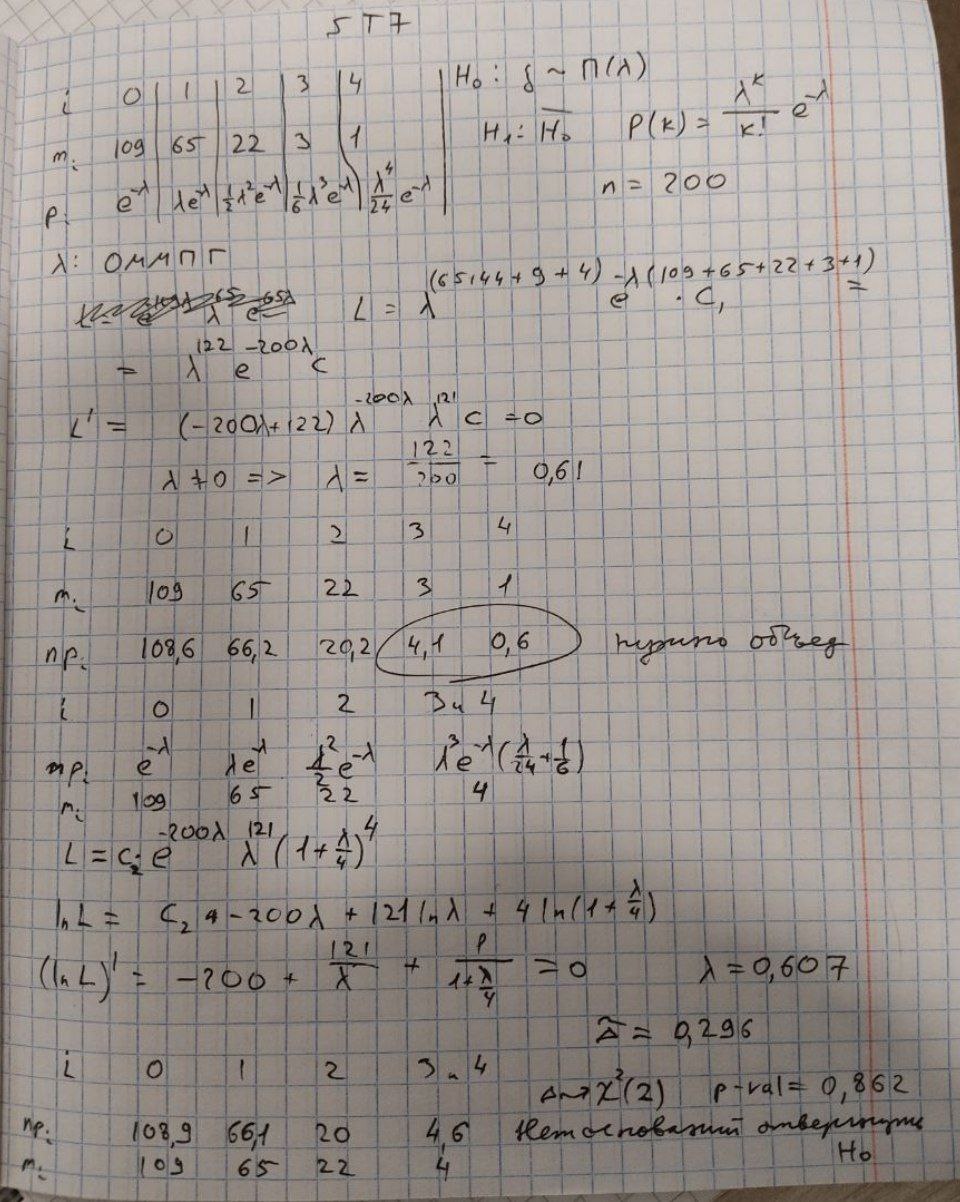 5 T 7
i 0 1 2 3 4 H₀: ξ ~ П(λ)
mᵢ 109 65 22 3 1 H₁: H̅₀ P(k) = λᵏ/k! e^-λ
pᵢ e^-λ λe^-λ ½λ²e^-λ 1/6 λ³e^-λ λ⁴/24 e^-λ n = 200
λ: ОММПГ
L = λ^(65+44+9+4) e^-λ(109+65+22+3+1) · C₁ =
= λ^122 e^-200λ C
L' = (-200λ+122) λ^-200λ λ^121 C = 0
λ ≠ 0 => λ = 122/200 = 0,61
i 0 1 2 3 4
mᵢ 109 65 22 3 1
npᵢ 108,6 66,2 20,2 4,1 0,6 нужно объед
i 0 1 2 3 и 4
npᵢ e^-λ λe^-λ λ²/2 e^-λ λ³e^-λ(λ/24+1/6)
nᵢ 109 65 22 4
L = C₂ · e^-200λ λ^121 (1+λ/4)^4
ln L = C₂ + -200λ + 121 ln λ + 4 ln(1+λ/4)
(ln L)' = -200 + 121/λ + 1/(1+λ/4) = 0 λ = 0,607
Δ̃ = 0,296
i 0 1 2 3 и 4
Δ ~> χ²(2) p-val = 0,862
npᵢ 108,9 66,1 20 4,6 Нет оснований отвергнуть
mᵢ 109 65 22 4 H₀